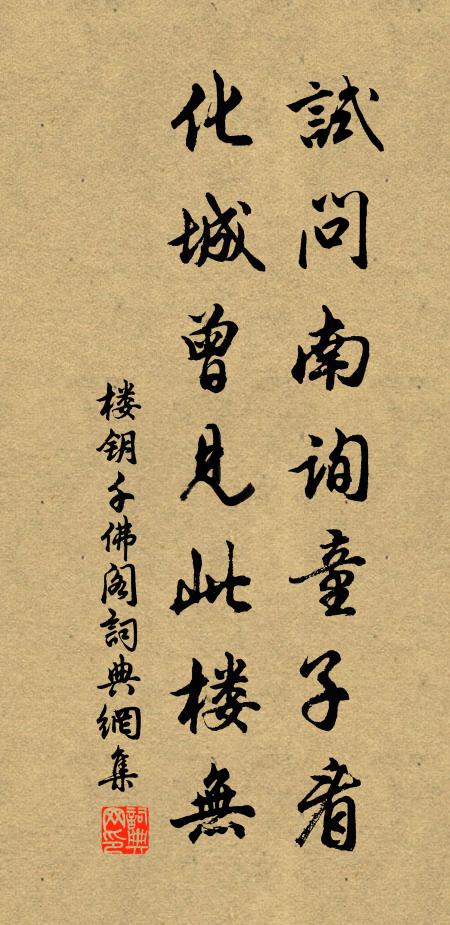 試問南詢童子看
化城曾見此楼無
楼钥千佛阁詞典網集
詞典
网印